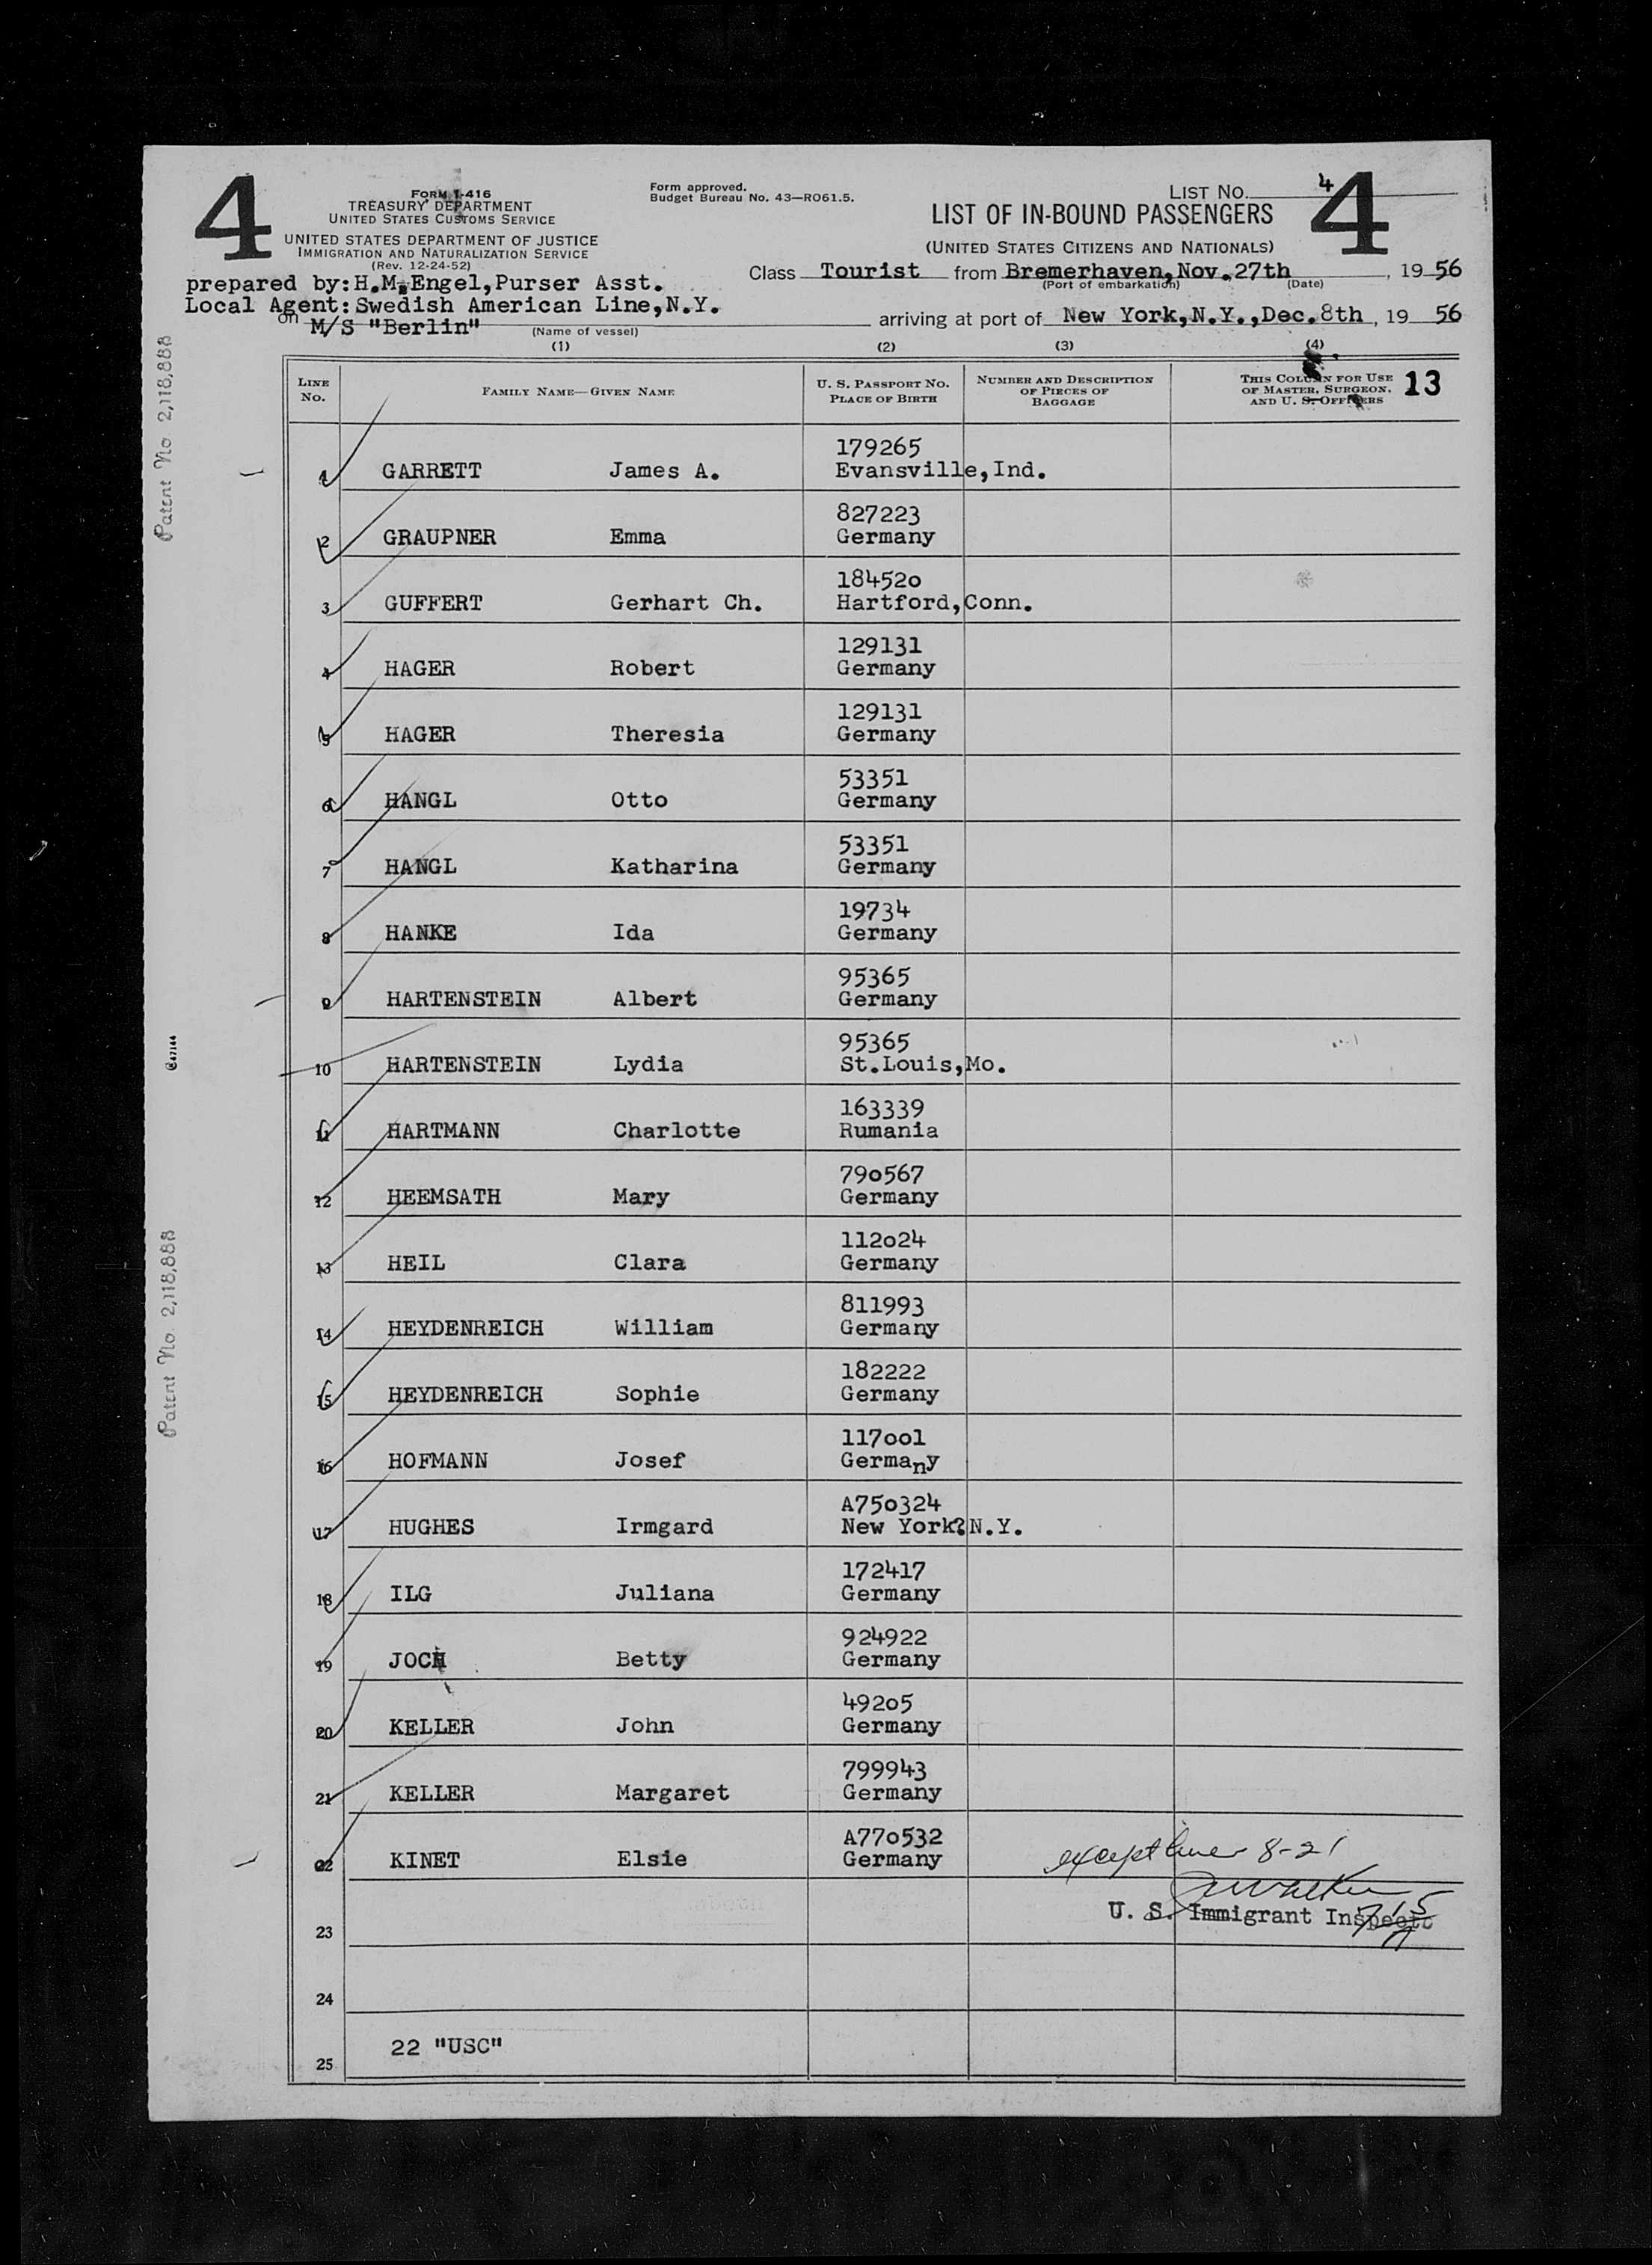 4
FORM I-416
TREASURY DEPARTMENT
UNITED STATES CUSTOMS SERVICE
UNITED STATES DEPARTMENT OF JUSTICE
IMMIGRATION AND NATURALIZATION SERVICE
(Rev. 12-24-52)
Form approved.
Budget Bureau No. 43—RO61.5.
LIST NO. 4
4
LIST OF IN-BOUND PASSENGERS
(UNITED STATES CITIZENS AND NATIONALS)
prepared by:H.M.Engel,Purser Asst.
Class Tourist from Bremerhaven,Nov.27th, 1956
(Port of embarkation) (Date)
Local Agent:Swedish American Line,N.Y.
on M/S "Berlin" (Name of vessel)
arriving at port of New York,N.Y.,Dec.8th, 1956
(1) (2) (3) (4)
LINE NO.
FAMILY NAME—GIVEN NAME
U. S. PASSPORT NO. PLACE OF BIRTH
NUMBER AND DESCRIPTION OF PIECES OF BAGGAGE
THIS COLUMN FOR USE OF MASTER, SURGEON, AND U. S. OFFICERS
13
179265
1 GARRETT James A. Evansville,Ind.
827223
2 GRAUPNER Emma Germany
184520
3 GUFFERT Gerhart Ch. Hartford,Conn.
129131
4 HAGER Robert Germany
129131
5 HAGER Theresia Germany
53351
6 HANGL Otto Germany
53351
7 HANGL Katharina Germany
19734
8 HANKE Ida Germany
95365
9 HARTENSTEIN Albert Germany
95365
10 HARTENSTEIN Lydia St.Louis,Mo.
163339
11 HARTMANN Charlotte Rumania
790567
12 HEEMSATH Mary Germany
112024
13 HEIL Clara Germany
811993
14 HEYDENREICH William Germany
182222
15 HEYDENREICH Sophie Germany
117001
16 HOFMANN Josef Germany
A750324
17 HUGHES Irmgard New York?N.Y.
172417
18 ILG Juliana Germany
924922
19 JOCH Betty Germany
49205
20 KELLER John Germany
799943
21 KELLER Margaret Germany
A770532
22 KINET Elsie Germany
except lines 8-21
U. S. Immigrant Inspector
23
24
22 "USC"
25
Patent No. 2,118,888
Patent No. 2,118,888